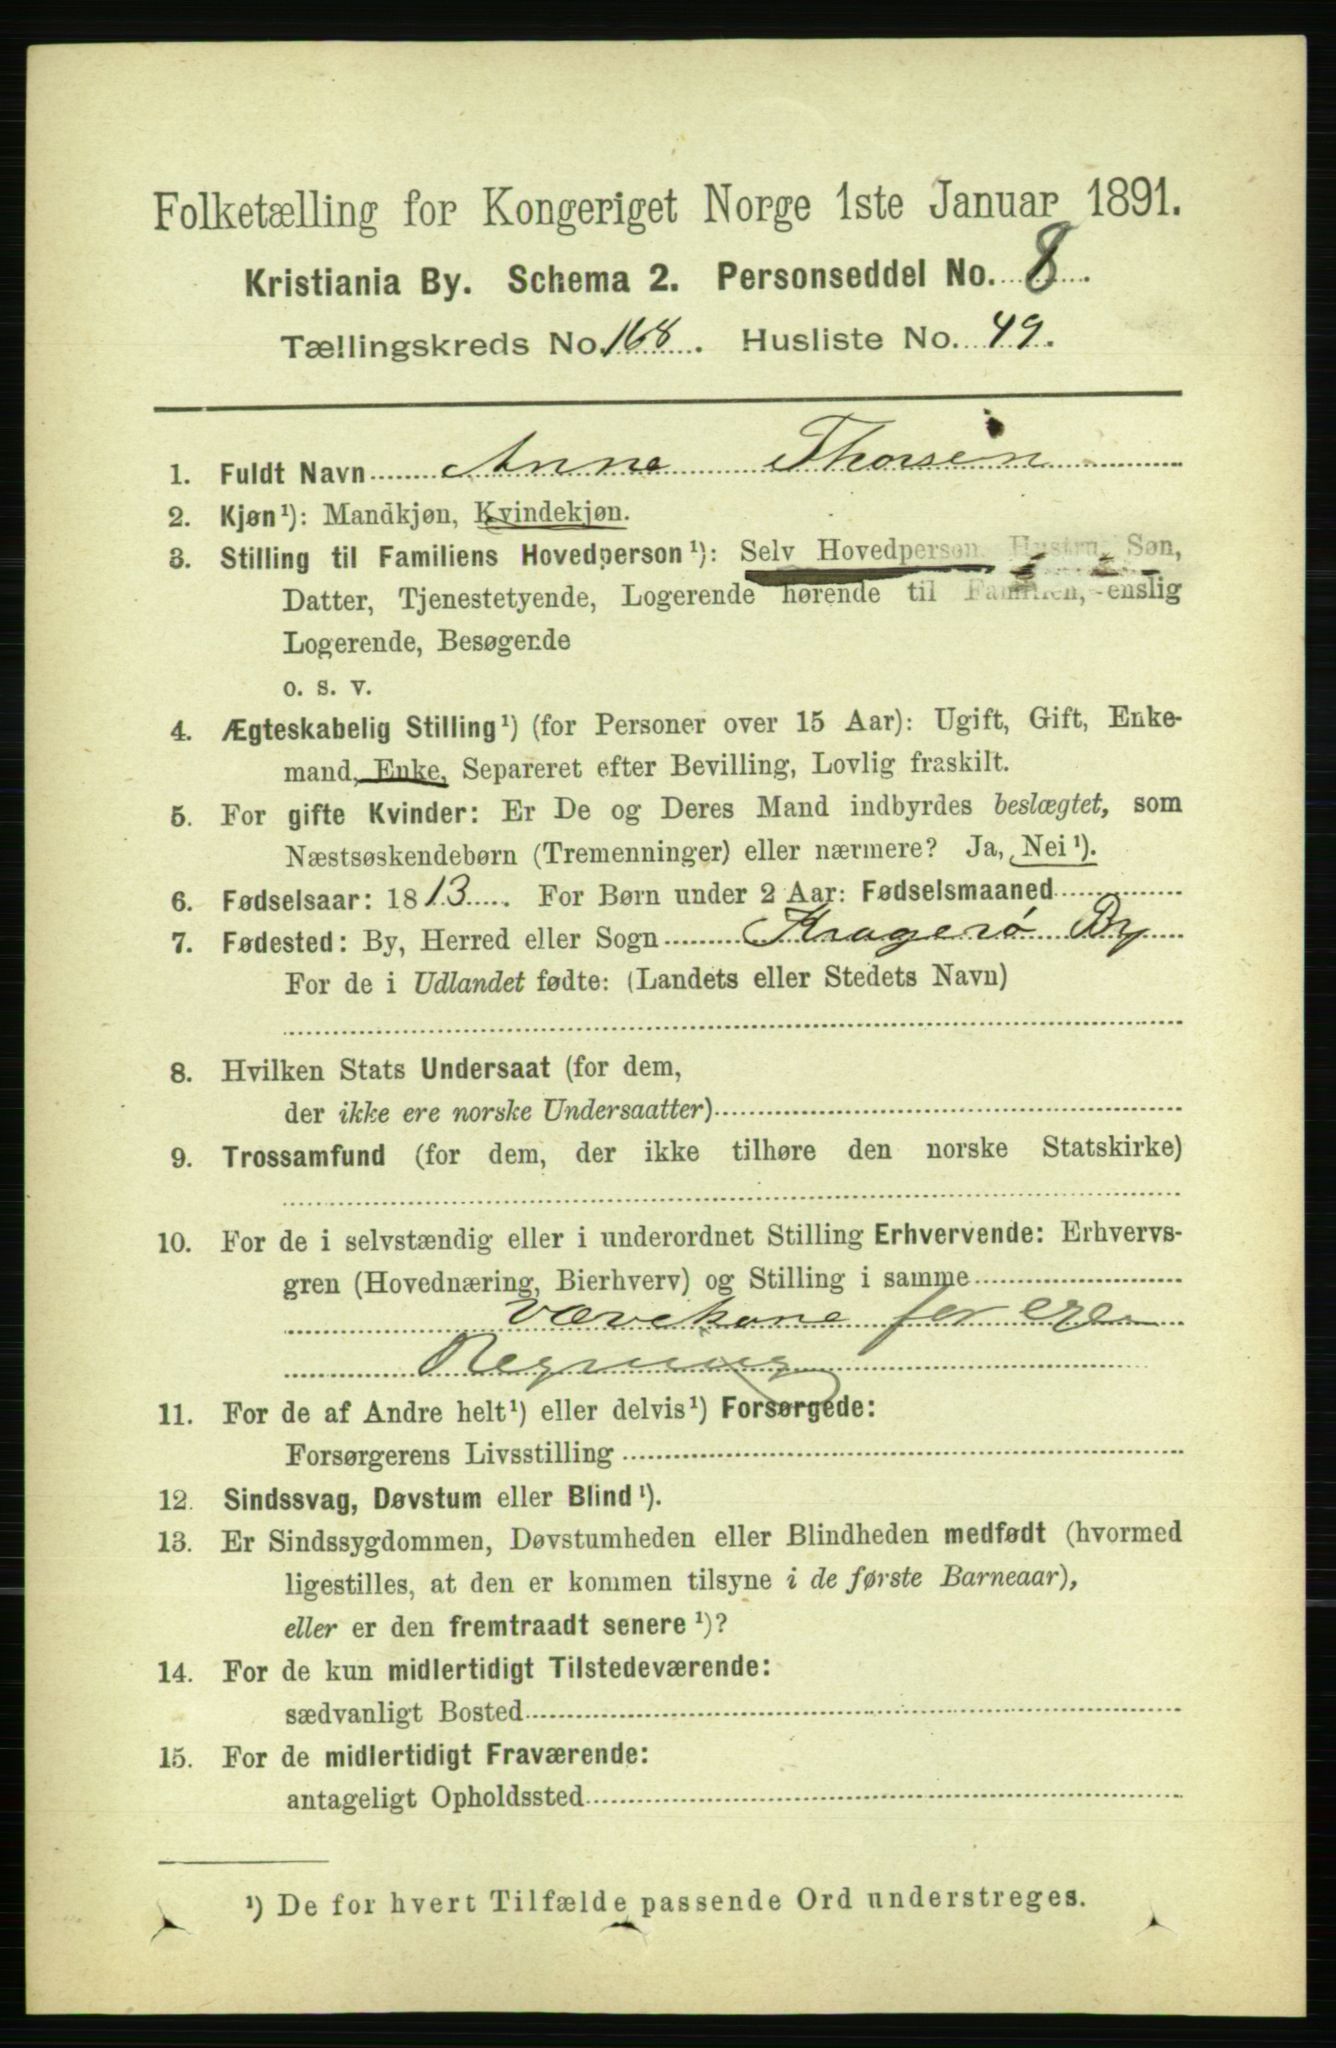 Folketælling for Kongeriget Norge 1ste Januar 1891.
Kristiania By. Schema 2. Personseddel No. 8.
Tællingskreds No. 168. Husliste No. 49.
1. Fuldt Navn Anne Thorsen
2. Kjøn¹): Mandkjøn, Kvindekjøn.
3. Stilling til Familiens Hovedperson¹): Selv Hovedperson, Hustru, Søn,
Datter, Tjenestetyende, Logerende hørende til Familien, enslig
Logerende, Besøgende
o. s. v.
4. Ægteskabelig Stilling¹) (for Personer over 15 Aar): Ugift, Gift, Enke-
mand, Enke, Separeret efter Bevilling, Lovlig fraskilt.
5. For gifte Kvinder: Er De og Deres Mand indbyrdes beslægtet, som
Næstsøskendebørn (Tremenninger) eller nærmere? Ja, Nei¹).
6. Fødselsaar: 1813. For Børn under 2 Aar: Fødselsmaaned
7. Fødested: By, Herred eller Sogn Kragerø By
For de i Udlandet fødte: (Landets eller Stedets Navn)
8. Hvilken Stats Undersaat (for dem,
der ikke ere norske Undersaatter)
9. Trossamfund (for dem, der ikke tilhøre den norske Statskirke)
10. For de i selvstændig eller i underordnet Stilling Erhvervende: Erhvervs-
gren (Hovednæring, Bierhverv) og Stilling i samme
Vævekone for egen
Regning
11. For de af Andre helt¹) eller delvis¹) Forsørgede:
Forsørgerens Livsstilling
12. Sindssvag, Døvstum eller Blind¹).
13. Er Sindssygdommen, Døvstumheden eller Blindheden medfødt (hvormed
ligestilles, at den er kommen tilsyne i de første Barneaar),
eller er den fremtraadt senere¹)?
14. For de kun midlertidigt Tilstedeværende:
sædvanligt Bosted
15. For de midlertidigt Fraværende:
antageligt Opholdssted
¹) De for hvert Tilfælde passende Ord understreges.